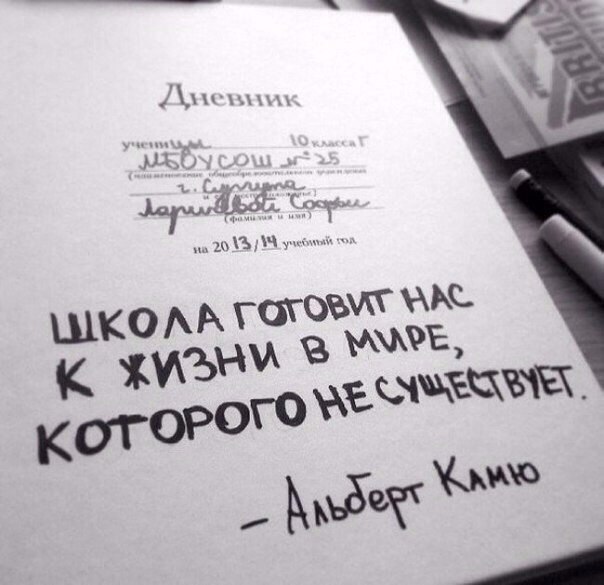 Дневник
ученицы 10 класса Г
МБОУСОШ №25
(наименование общеобразовательного учреждения
г. Сургута
Софьи
(фамилия и имя)
на 2013/14 учебный год
ШКОЛА ГОТОВИТ НАС
К ЖИЗНИ В МИРЕ,
КОТОРОГО НЕ СУЩЕСТВУЕТ.
– Альберт Камю